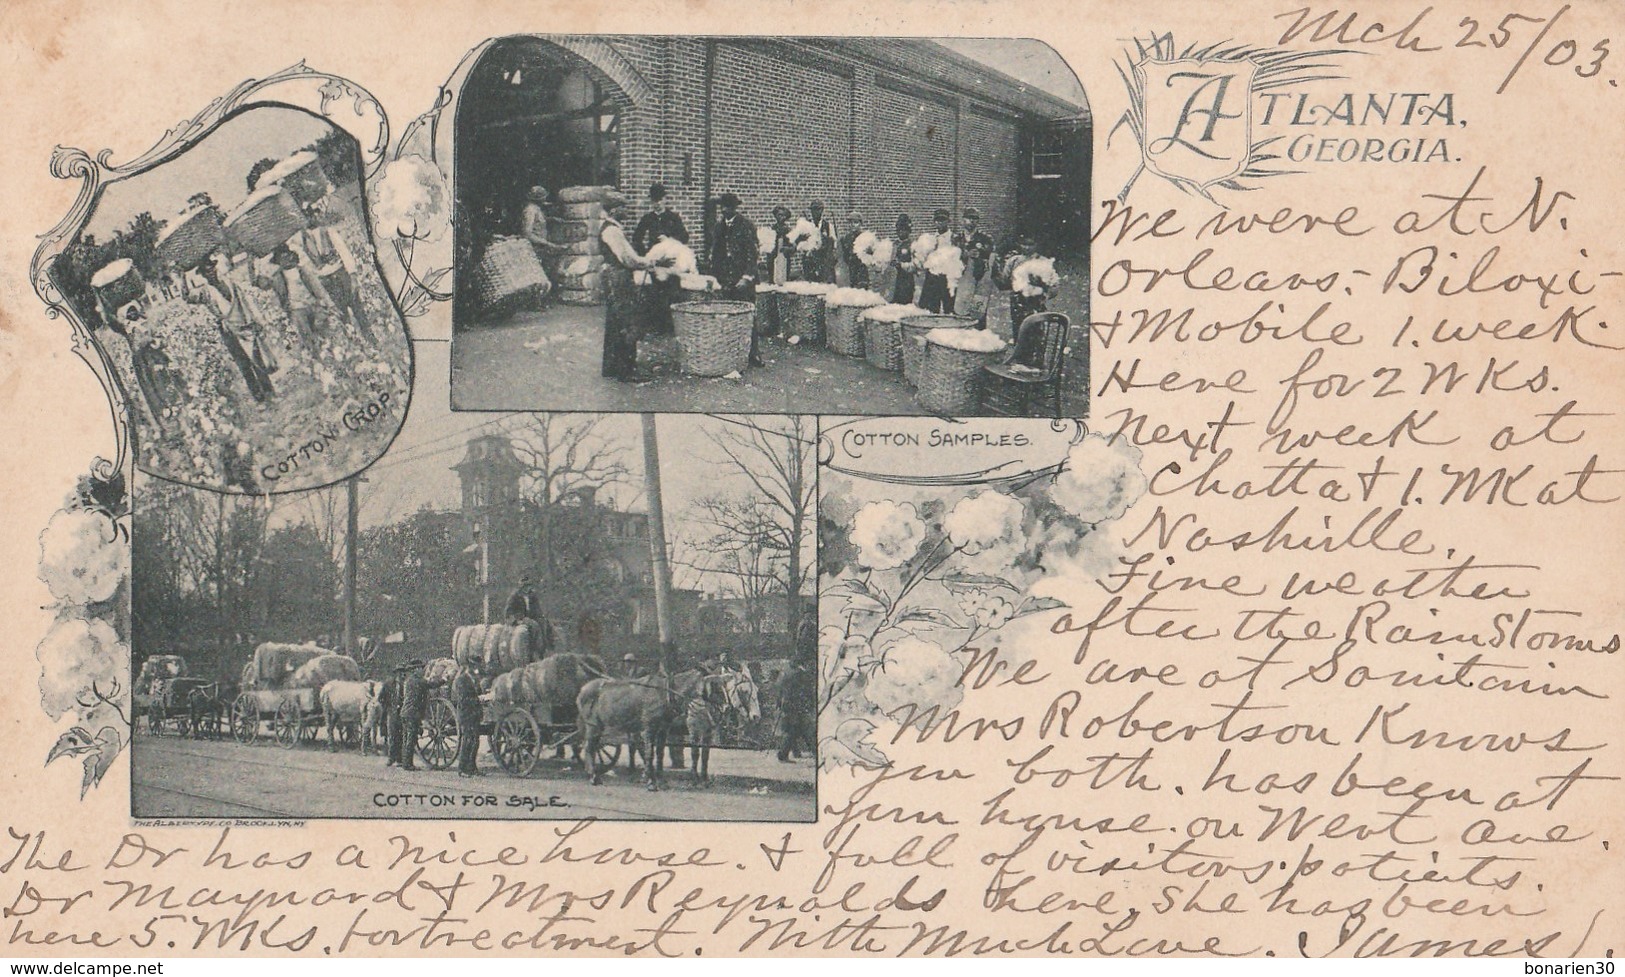 Mch 25/03.
ATLANTA,
GEORGIA.
We were at N.
Orleans, - Biloxi -
& Mobile 1. week.
Here for 2 Wks.
Next week at
Chatta & 1. Wk at
Nashville.
Fine weather
after the Rain Storms
We are at Sanitarium
Mrs Robertson Knows
you both. has been at
your house. on West Ave.
The Dr has a nice house. & full of visitors. patients.
Dr Maynard & Mrs Reynolds here, She has been
here 5. Wks. for treatment. With Much Love. James).
COTTON CROP.
COTTON SAMPLES.
COTTON FOR SALE.
THE ALBERTYPE CO BROOKLYN, NY
www.delcampe.net
bonarien30